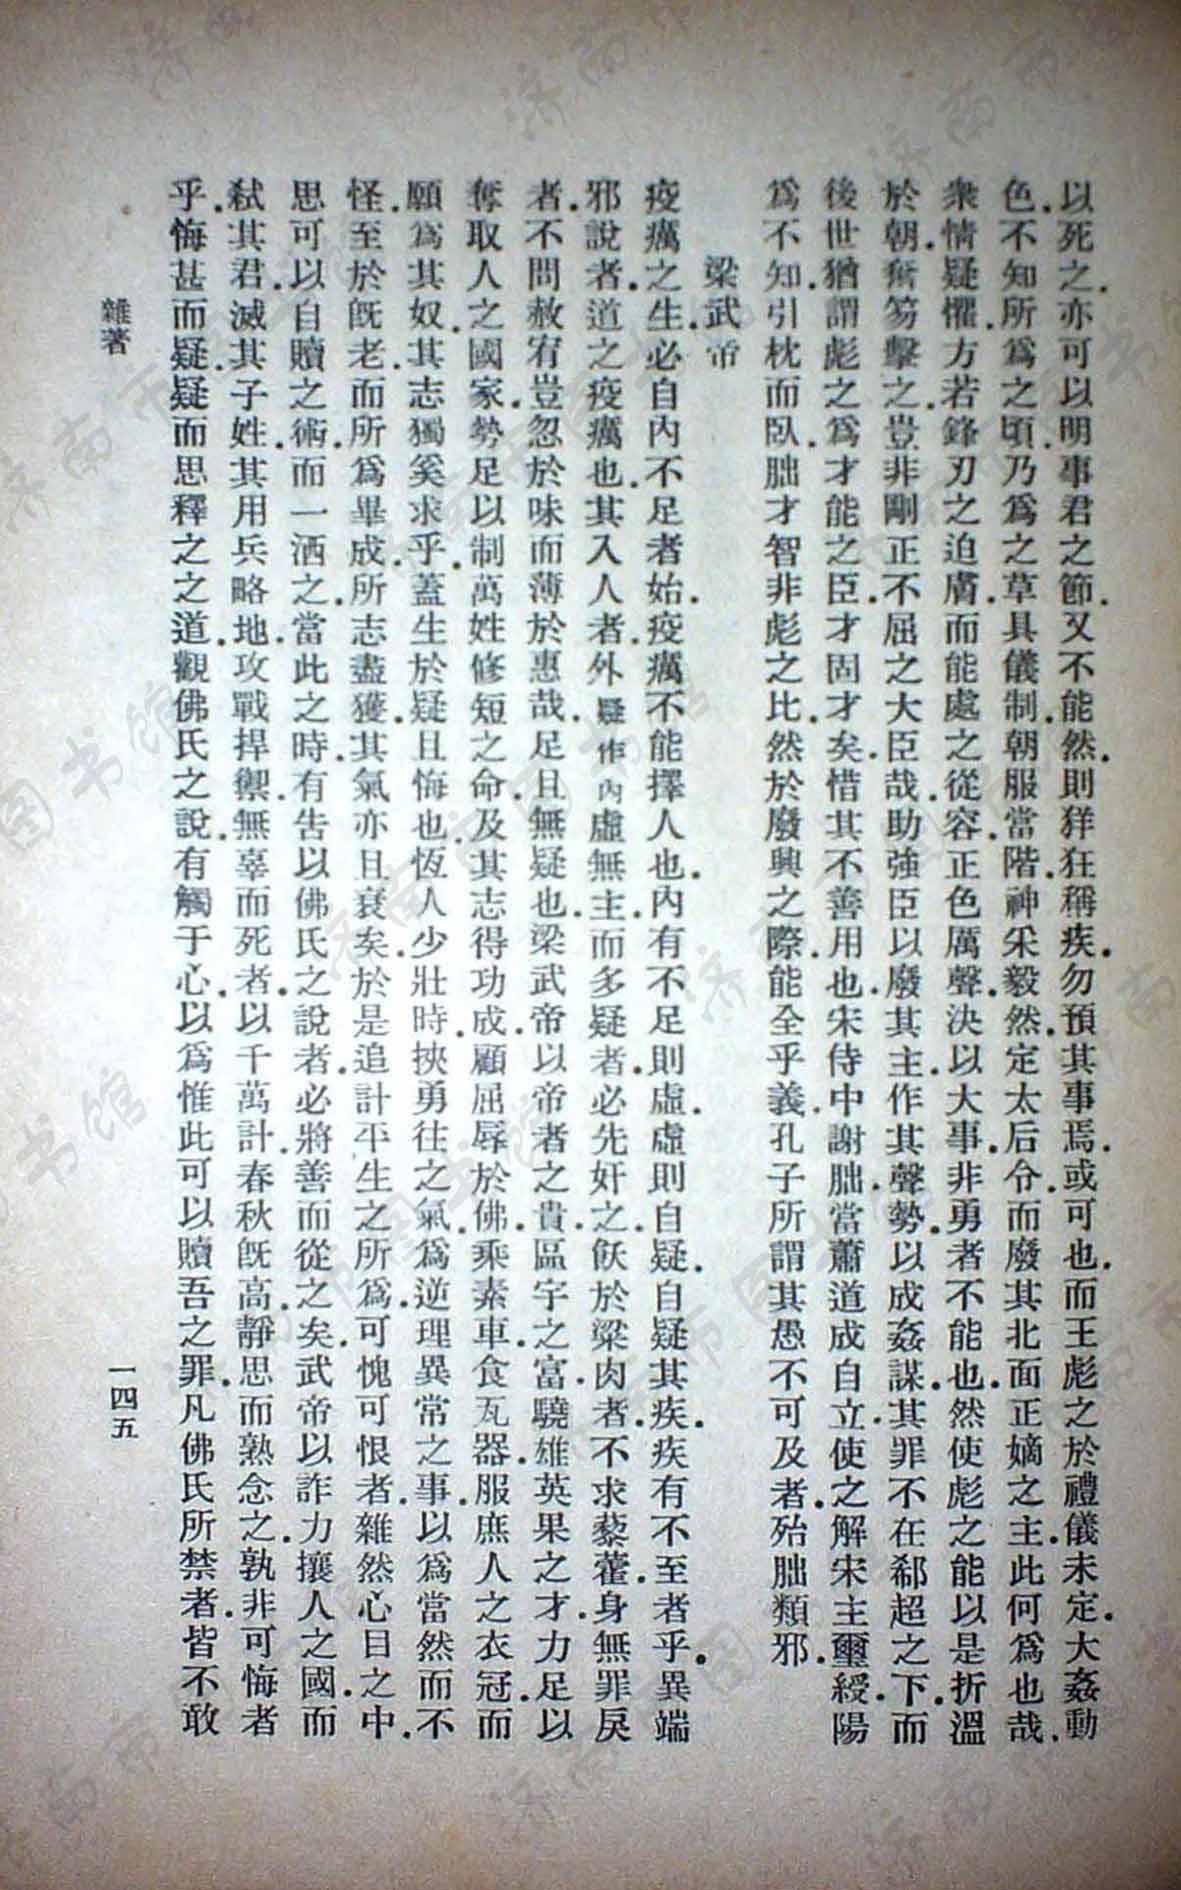 以死之亦可以明事君之節又不能然則佯狂稱疾勿預其事焉或可也而王彪之於禮儀未定大姦動
色不知所爲之頃乃爲之草具儀制朝服當階神采毅然定太后令而廢其北面正嫡之主此何爲也哉
衆情疑懼方若鋒刃之迫膚而能處之從容正色厲聲決以大事非勇者不能也然使彪之能以是折溫
於朝奮笏擊之豈非剛正不屈之大臣哉助強臣以廢其主作其聲勢以成姦謀其罪不在郗超之下而
後世猶謂彪之爲才能之臣才固才矣惜其不善用也宋侍中謝朏當蕭道成自立使之解宋主璽綬陽
爲不知引枕而臥朏才智非彪之比然於廢興之際能全乎義孔子所謂其愚不可及者殆朏類邪
梁武帝
疫癘之生必自內不足者始疫癘不能擇人也內有不足則虛虛則自疑自疑其疾疾有不至者乎異端
邪說者道之疫癘也其入人者外疑作內虛無主而多疑者必先奸之飫於粱肉者不求藜藿身無罪戾
者不問赦宥豈忽於味而薄於惠哉足且無疑也梁武帝以帝者之貴區宇之富驍雄英果之才力足以
奪取人之國家勢足以制萬姓修短之命及其志得功成顧屈辱於佛乘素車食瓦器服庶人之衣冠而
願爲其奴其志獨奚求乎蓋生於疑且悔也恆人少壯時挾勇往之氣爲逆理異常之事以爲當然而不
怪至於旣老而所爲畢成所志盡獲其氣亦且衰矣於是追計平生之所爲可愧可恨者雜然心目之中
思可以自贖之術而一洒之當此之時有告以佛氏之說者必將善而從之矣武帝以詐力攘人之國而
弒其君滅其子姓其用兵略地攻戰捍禦無辜而死者以千萬計春秋旣高靜思而熟念之孰非可悔者
乎悔甚而疑疑而思釋之之道觀佛氏之說有觸于心以爲惟此可以贖吾之罪凡佛氏所禁者皆不敢
雜著
一四五